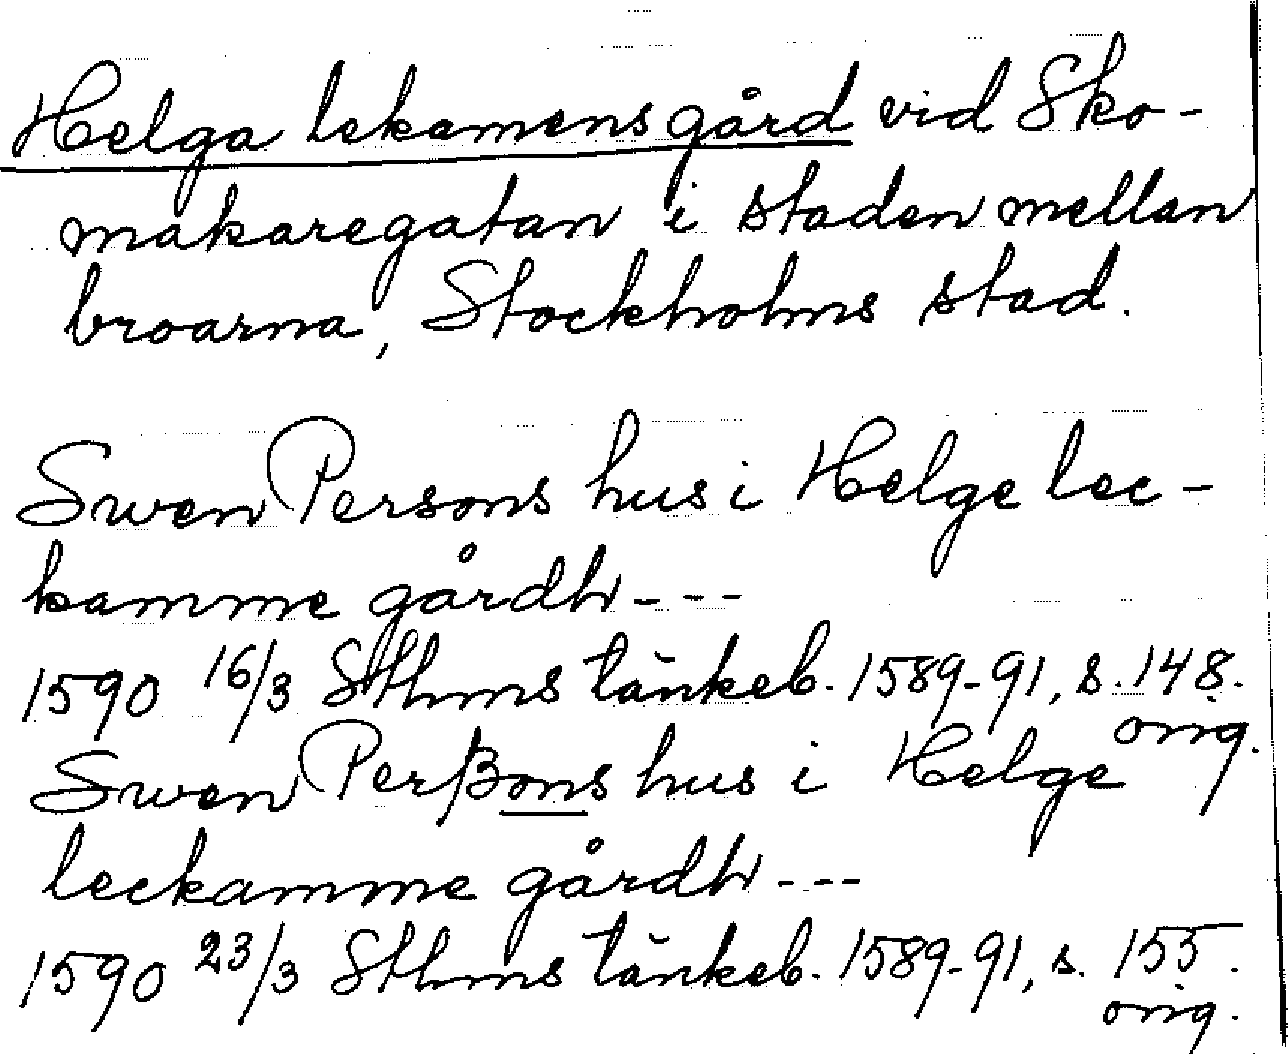 Helga lekamens gård vid Sko-
makaregatan i staden mellan
broarna, Stockholms stad.
Swen Persons hus i Helge lec-
kamme gårdh ---
1590 16/3 Sthms tänkeb. 1589-91, s. 148.
orig.
Swen Perßons hus i Helge
leckamme gårdh ---
1590 23/3 Sthms tänkeb. 1589-91, s. 155.
orig.